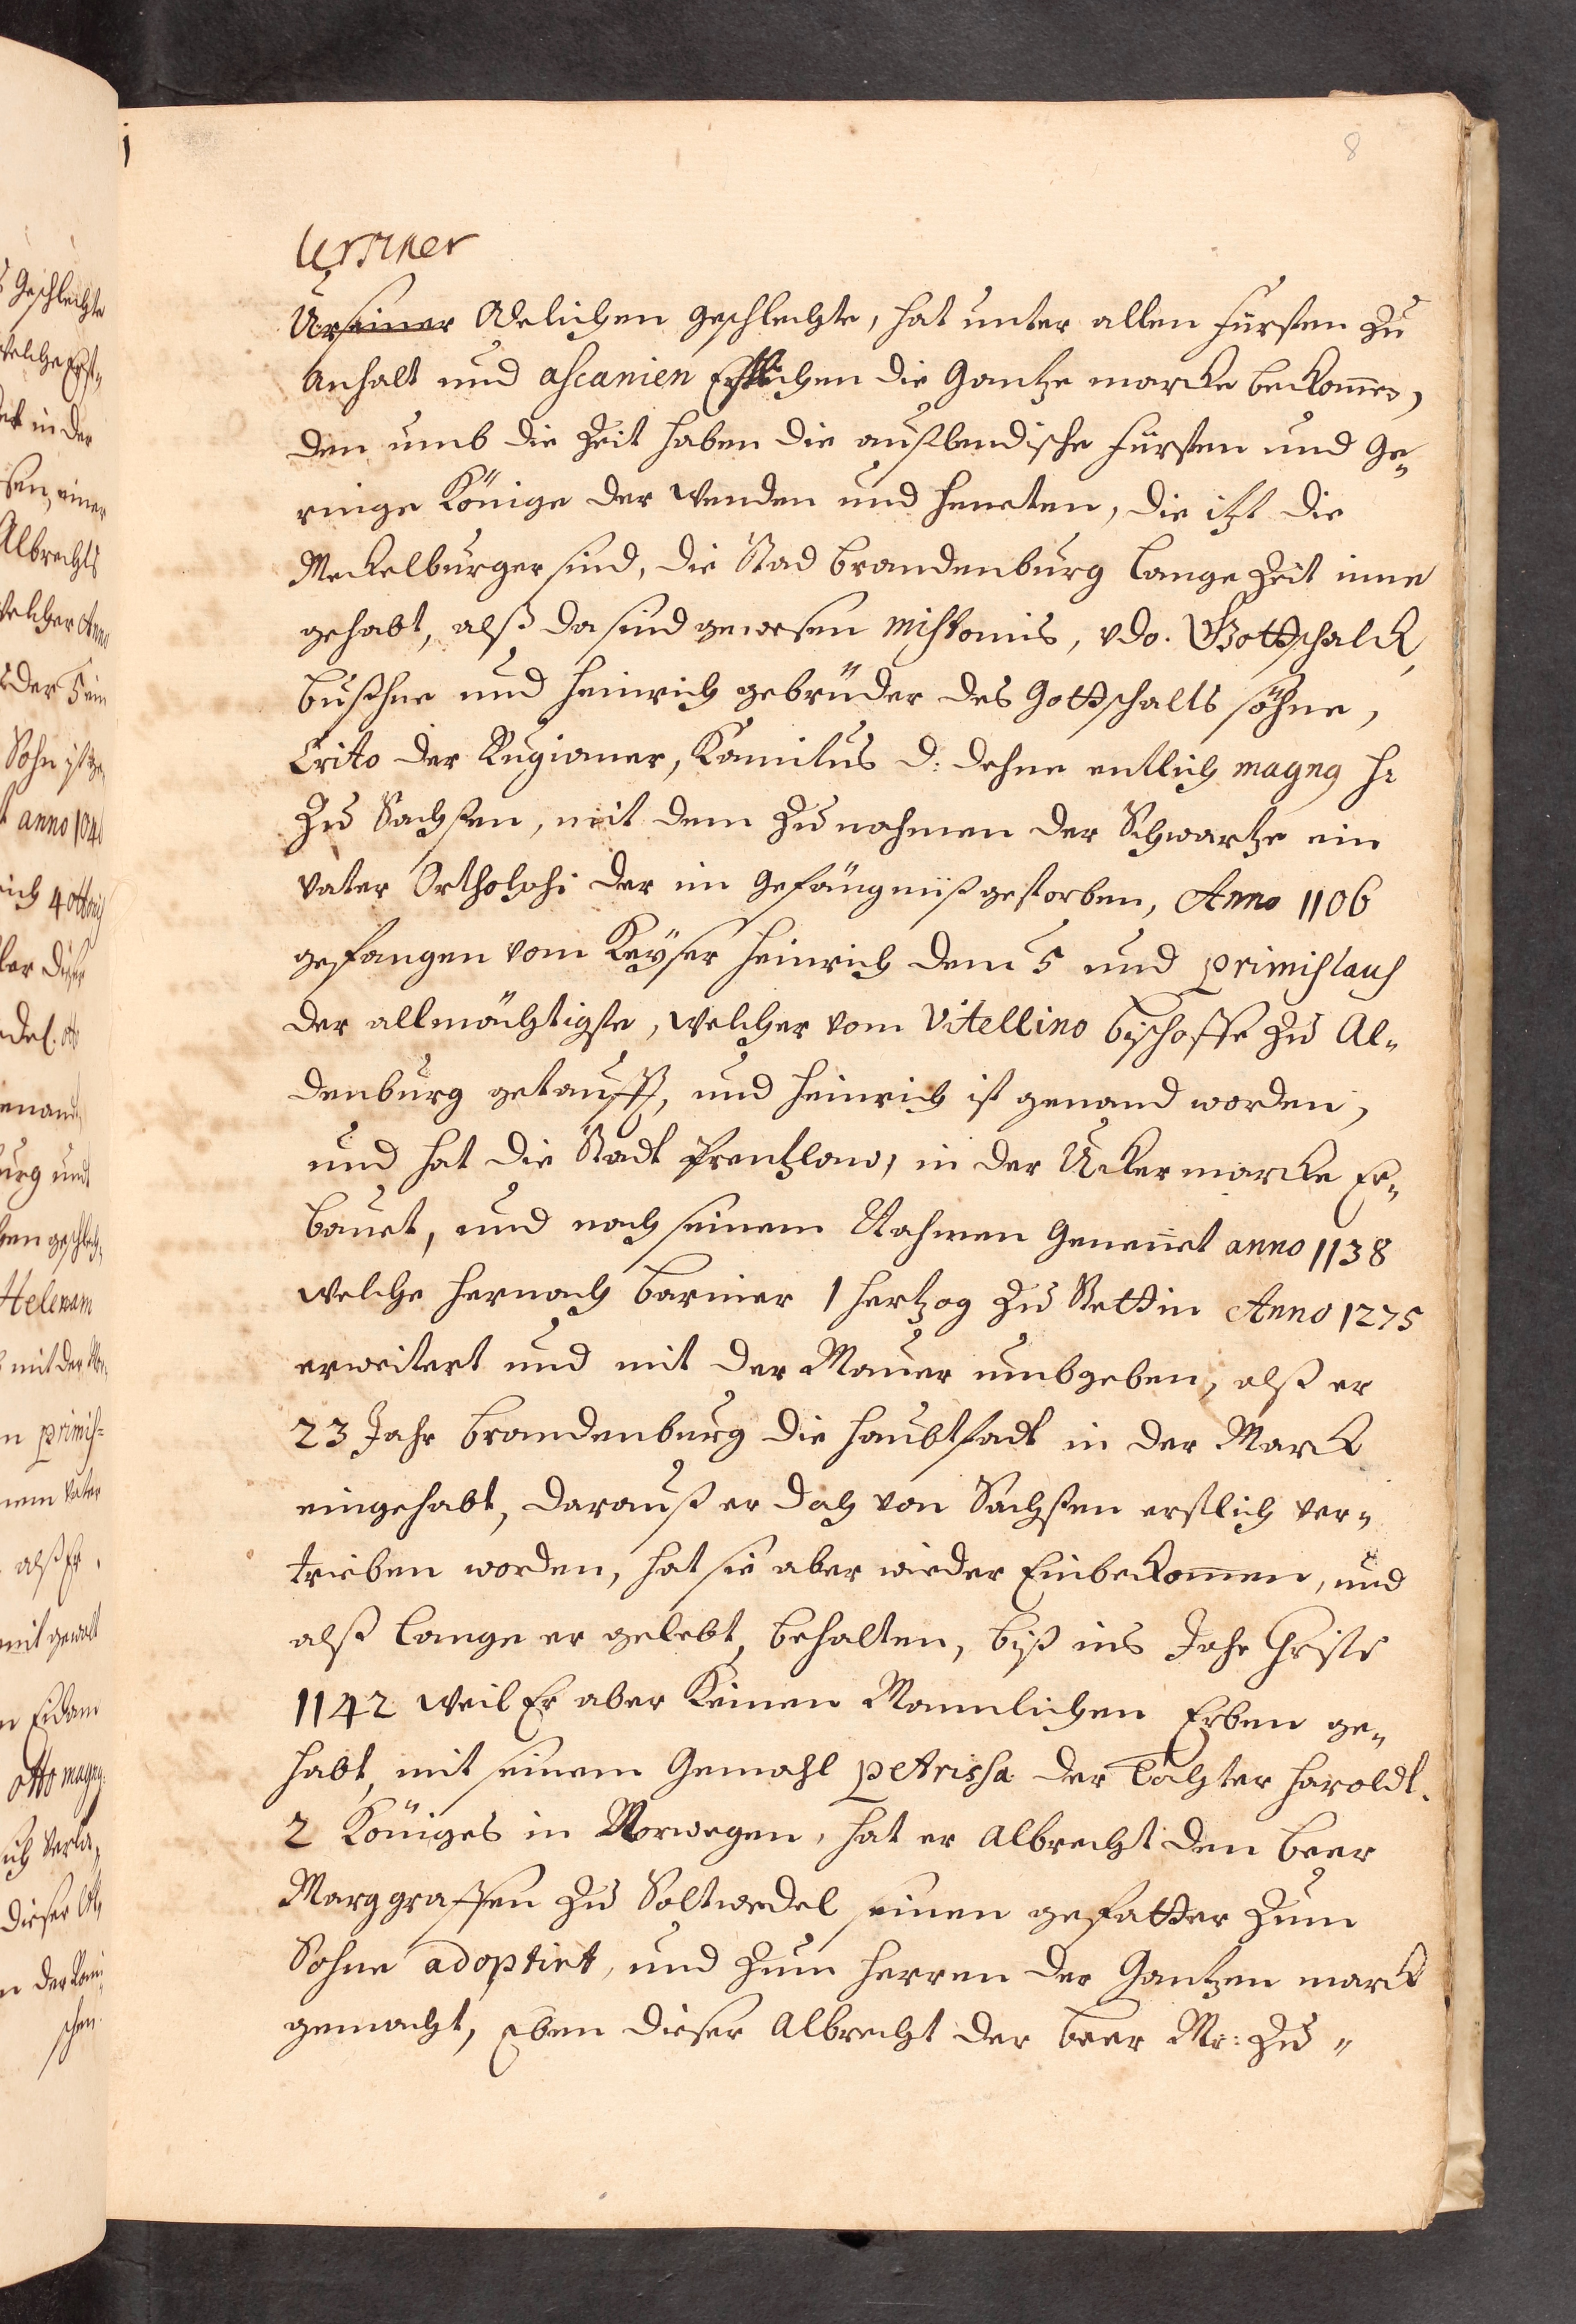 8
Ursiner
Urseiner Adelichen geschlechte, hat unter allen fürsten zu
Anhalt und ascanien Erstlichen die Gantze marcke beckommen,
den umb die Zeit haben die außlendische fürsten und Ge-
ringe Könige der wenden und heneten, die itzt die
Meckelburger sind, die Stad brandenburg lange Zeit inne
gehabt, alß da sind gewesen mistonis, vdo. Gottschalck,
bußhne und heinrich gebrüder des Gottschalks söhne,
Crito der Rugianer, Kanitus d: dehne entlich magng h:
zu Sachsen, mit dem zunahmen der Schwartze ein
vater Ortholphi der im gefängniß gestorben, Anno 1106
gefangen vom Keyser heinrich dem 5 und primislaus
der allmächtigste, welcher vom Vitellino bischoffe zu Al-
denburg getaufft, und heinrich ist genand worden,
und hat die Stadt Prentzlow, in der Uckermarcke Er-
bauet, und nach seinem Nahmen Genennet anno 1138
welche hernach barnier 1 hertzog zu Stettin Anno 1275
erweitert und mit der Mauer umbgeben, alß er
23 Jahr brandenburg die haubtstadt in der Marck
eingehabt, darauß er doch von Sachsen erstlich ver-
trieben worden, hat sie aber wieder Einbeckommen, und
alß lange er gelebt, behalten, biß ins Jahr Christi
1142 weil Er aber Keinen Mannlichen Erben ge-
habt, mit seinem Gemahl petrissa der Tochter haroldt.
2 Königes in Norwegen, hat er Albrecht den beer
Marggraffen zu Soltwedel seinen gefatter zum
Sohne adoptiret, und zum herren der Gantzen marck
gemacht, Eben dieser Albrecht der beer Mr: zu -